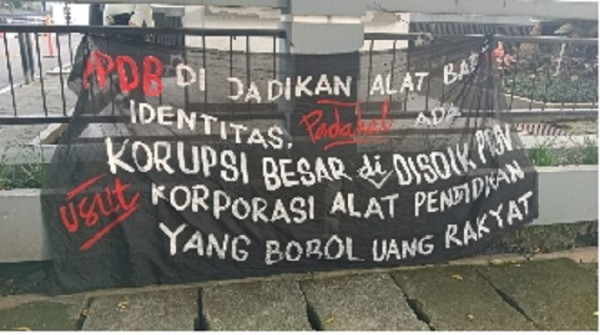 PPDB DI JADIKAN ALAT
IDENTITAS, Padahal ADA
KORUPSI BESAR di DISDIK
USUT KORPORASI ALAT PENDIDIKAN
YANG BOBOL UANG RAKYAT